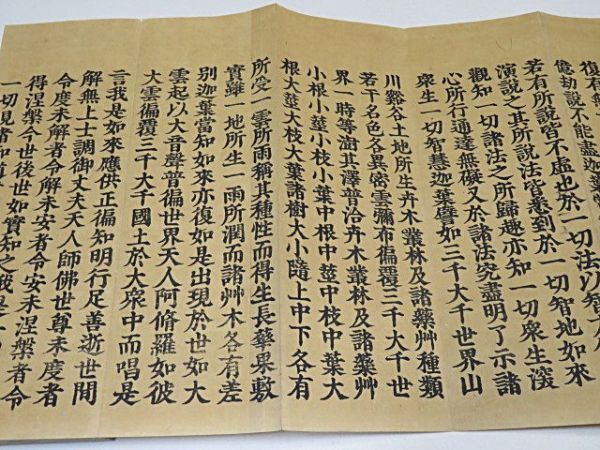 復有無
億劫說不能盡迦葉
若有所說皆不虛也於一切法以智方
演說之其所說法皆悉到於一切智地如來
觀知一切諸法之所歸趣亦知一切衆生深
心所行通達無礙又於諸法究盡明了示諸
衆生一切智慧迦葉譬如三千大千世界山
川谿谷土地所生卉木叢林及諸藥艸種類
若干名色各異密雲彌布徧覆三千大千世
界一時等澍其澤普洽卉木叢林及諸藥艸
小根小莖小枝小葉中根中莖中枝中葉大
根大莖大枝大葉諸樹大小隨上中下各有
所受一雲所雨稱其種性而得生長華果敷
實雖一地所生一雨所潤而諸艸木各有差
別迦葉當知如來亦復如是出現於世如大
雲起以大音聲普徧世界天人阿脩羅如彼
大雲徧覆三千大千國土於大衆中而唱是
言我是如來應供正徧知明行足善逝世間
解無上士調御丈夫天人師佛世尊未度者
令度未解者令解未安者令安未涅槃者令
得涅槃今世後世如實知之我是一
一切見者知